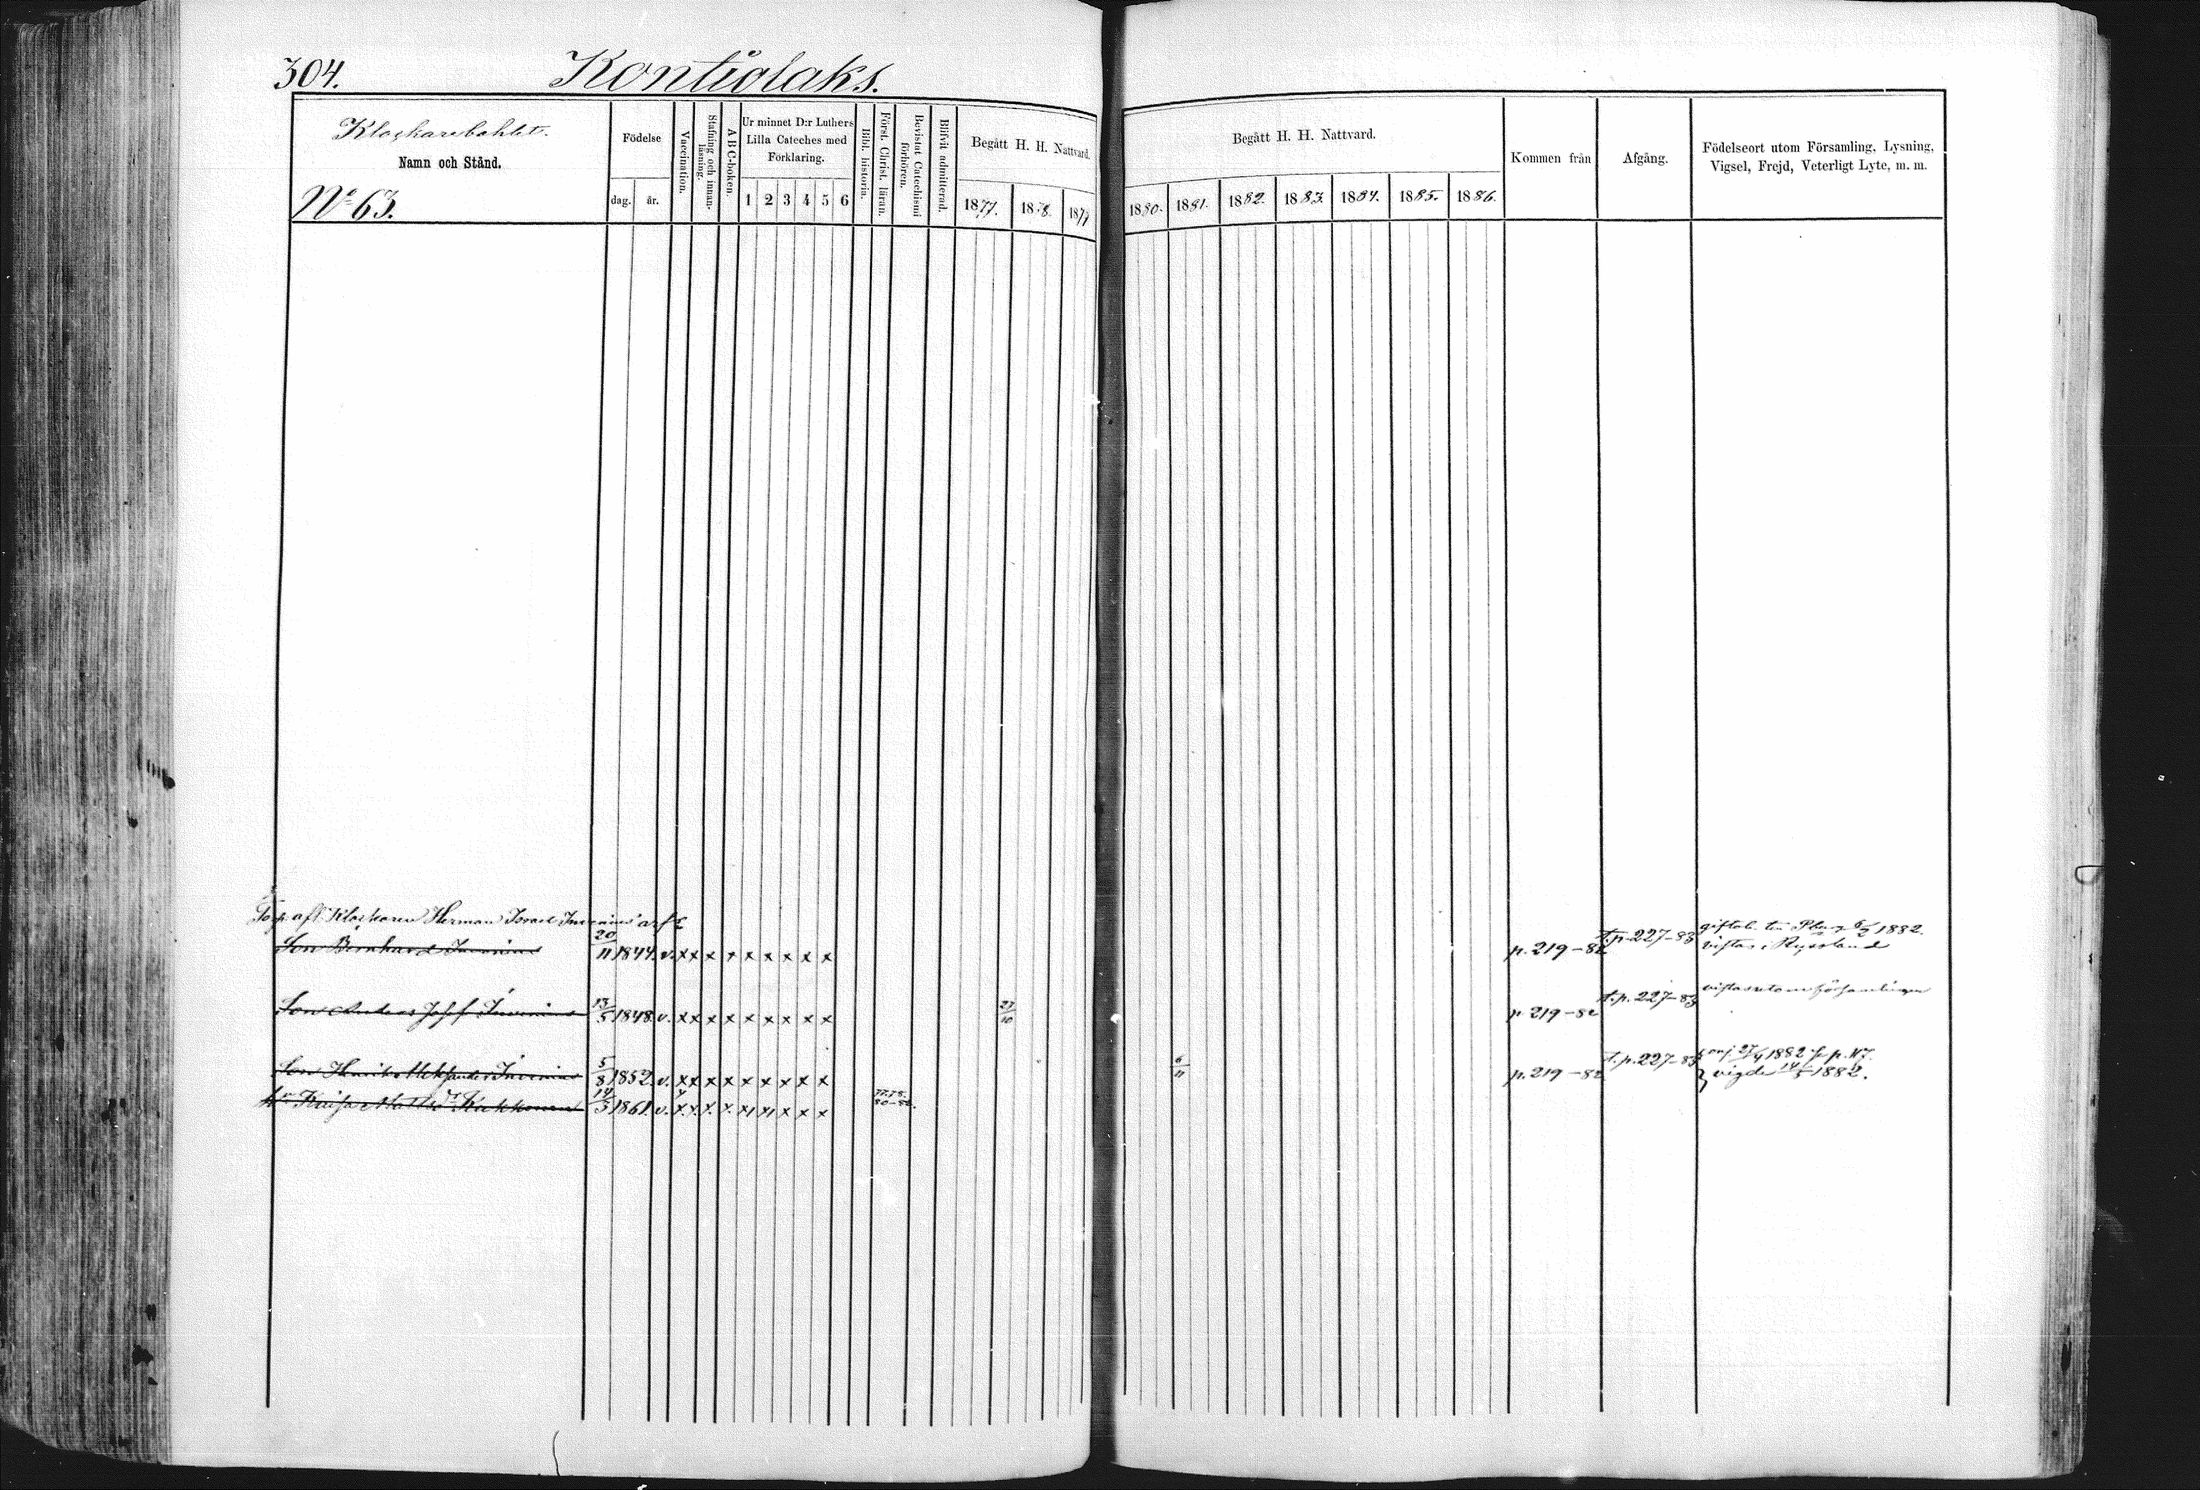 304.
Kontiolaks.
Klockarebohlet.
Namn och Stånd.
No 63.
Födelse
dag.
år.
Vaccination.
Stafning och innan-
läsning.
A B C-boken.
Ur minnet D:r Luthers
Lilla Cateches med
Förklaring.
1 2 3 4 5 6
Bibl. historia.
Först. Christ. läran.
Bevistat Catechismi
förhören.
Blifvit admitterad.
Begått H. H. Nattvard.
1877. 1878. 1879
Begått H. H. Nattvard.
1880. 1881. 1882. 1883. 1884. 1885. 1886.
Kommen från
Afgång.
Födelseort utom Församling, Lysning,
Vigsel, Frejd, Veterligt Lyte, m. m.
Klockaren Herman Israel
giftob. 1882.
Son Bernhard Invenius 20/11 1844. v. x x x x x x x x x p. 219-82 t. p. 227-83 vistas i Ryssland
vistas utom församlingen
Son Josef Invenius 13/5 1848. v. x x x x x x x x x 27/10 p. 219-82 t. p. 227-83
27/4 1882 fr p. 117.
Son Henrik Aleksander Invenius 5/8 1852. v. x x x x x x x x x 6/11 p. 219-82 t. p. 227-83 vigde 14/5 1882.
Kaisa 14/5 1861. v. x x x x x x x x x 77.78. 80-82.